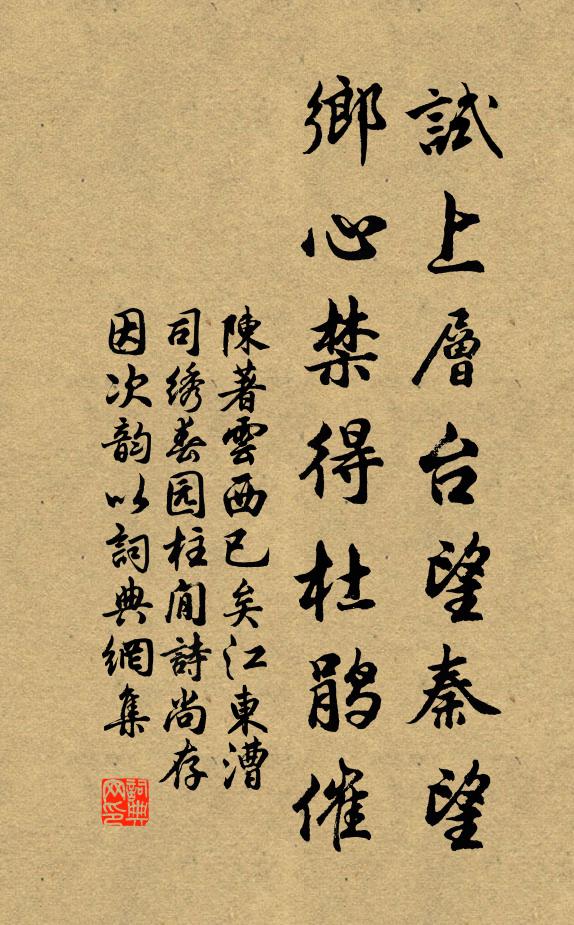 試上層台望秦望
鄉心禁得杜鹃催
陳著雲西已矣江東漕
司绣春园柱間詩尚存
因次韵以詞典網集
詞典網印